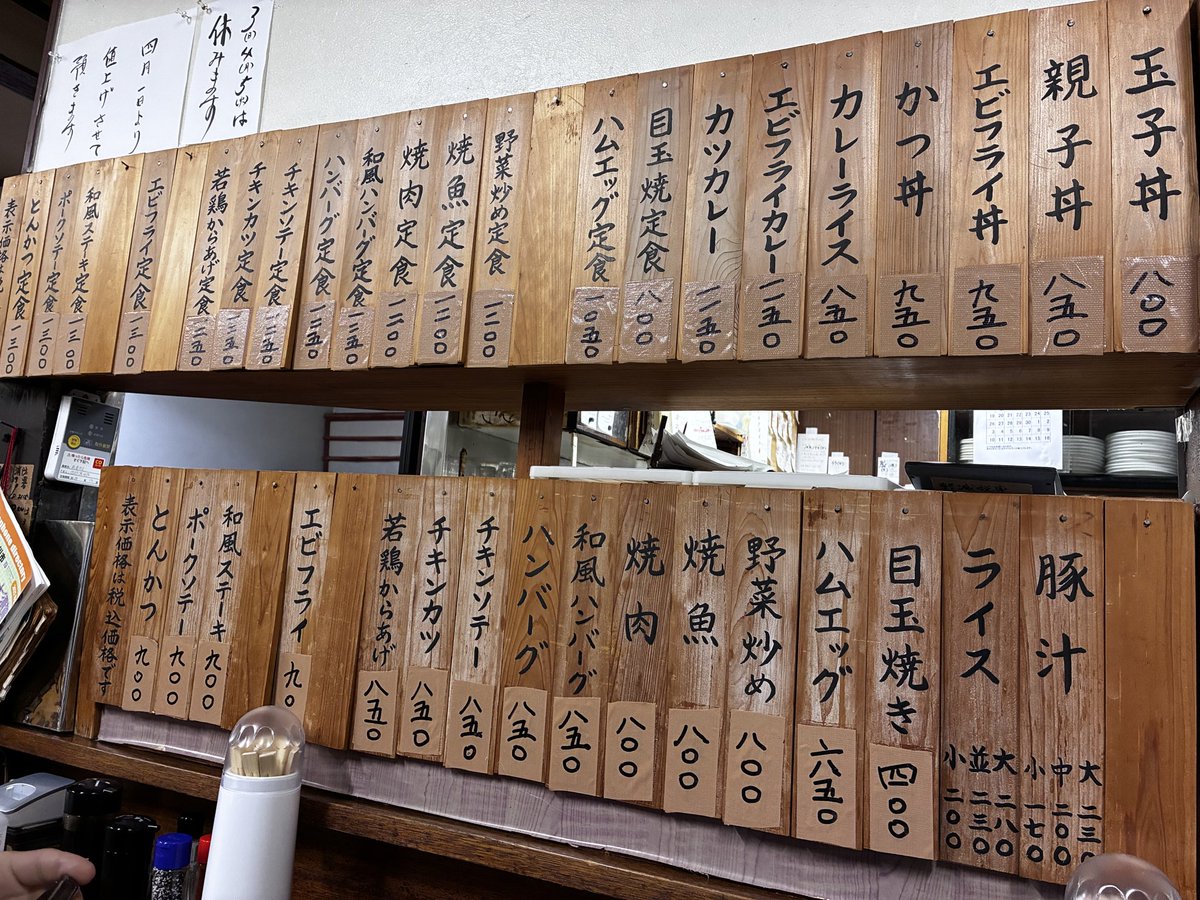 休みます
四月一日より
値上げさせて
頂きます
玉子丼 八〇〇
親子丼 八五〇
エビフライ丼 九五〇
かつ丼 九五〇
カレーライス 八五〇
エビフライカレー 一一五〇
カツカレー 一一五〇
目玉焼定食 八〇〇
ハムエッグ定食 一〇五〇
野菜炒め定食 一二〇〇
焼魚定食 一二〇〇
焼肉定食 一二〇〇
和風ハンバーグ定食 一二五〇
ハンバーグ定食 一二五〇
チキンソテー定食 一二五〇
チキンカツ定食 一二五〇
若鶏からあげ定食 一二五〇
エビフライ定食 一三〇〇
和風ステーキ定食 一三〇〇
ポークソテー定食 一三〇〇
とんかつ定食 一三〇〇
表示価格は
豚汁 大二三〇 中二〇〇 小一七〇
ライス 大二八〇 並二三〇 小二〇〇
目玉焼き 四〇〇
ハムエッグ 六五〇
野菜炒め 八〇〇
焼魚 八〇〇
焼肉 八〇〇
和風ハンバーグ 八五〇
ハンバーグ 八五〇
チキンソテー 八五〇
チキンカツ 八五〇
若鶏からあげ 八五〇
エビフライ 九〇
和風ステーキ 九〇〇
ポークソテー 九〇〇
とんかつ 九〇〇
表示価格は税込価格です